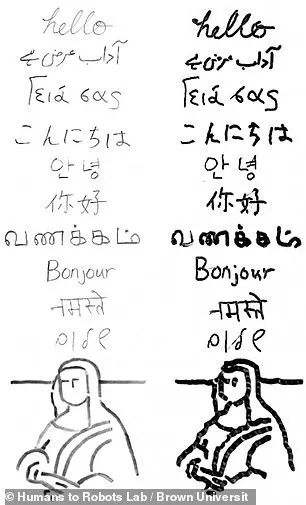 hello hello
آداب عرض ہے آداب عرض ہے
Γειά σας Γειά σας
こんにちは こんにちは
안녕 안녕
你好 你好
வணக்கம் வணக்கம்
Bonjour Bonjour
नमस्ते नमस्ते
שלום שלום
© Humans to Robots Lab / Brown Universit